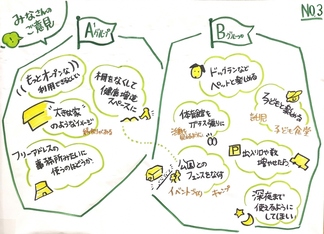 みなさんの
ご意見
NO3
Aグループ
もっとオープンな
利用できない
"大きな家"
のようなイメージ
フリーアドレスの
事務所みたいに
使うのはどうか。
柵をなくして
健康増進
スペースに
Bグループ
ドッグランなど
ペットと楽しめる
体育館を
ガラス張りに
子どもと楽しめる
託児
子ども食堂
公園との
フェンスをなくす
イベント
キャンプ
出入口の数
増やせたら。
深夜まで
使えるように
してほしい